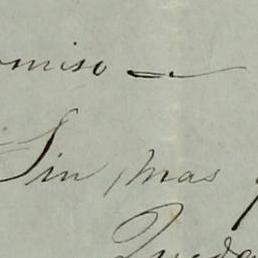 omiso
Sin mas
Queda